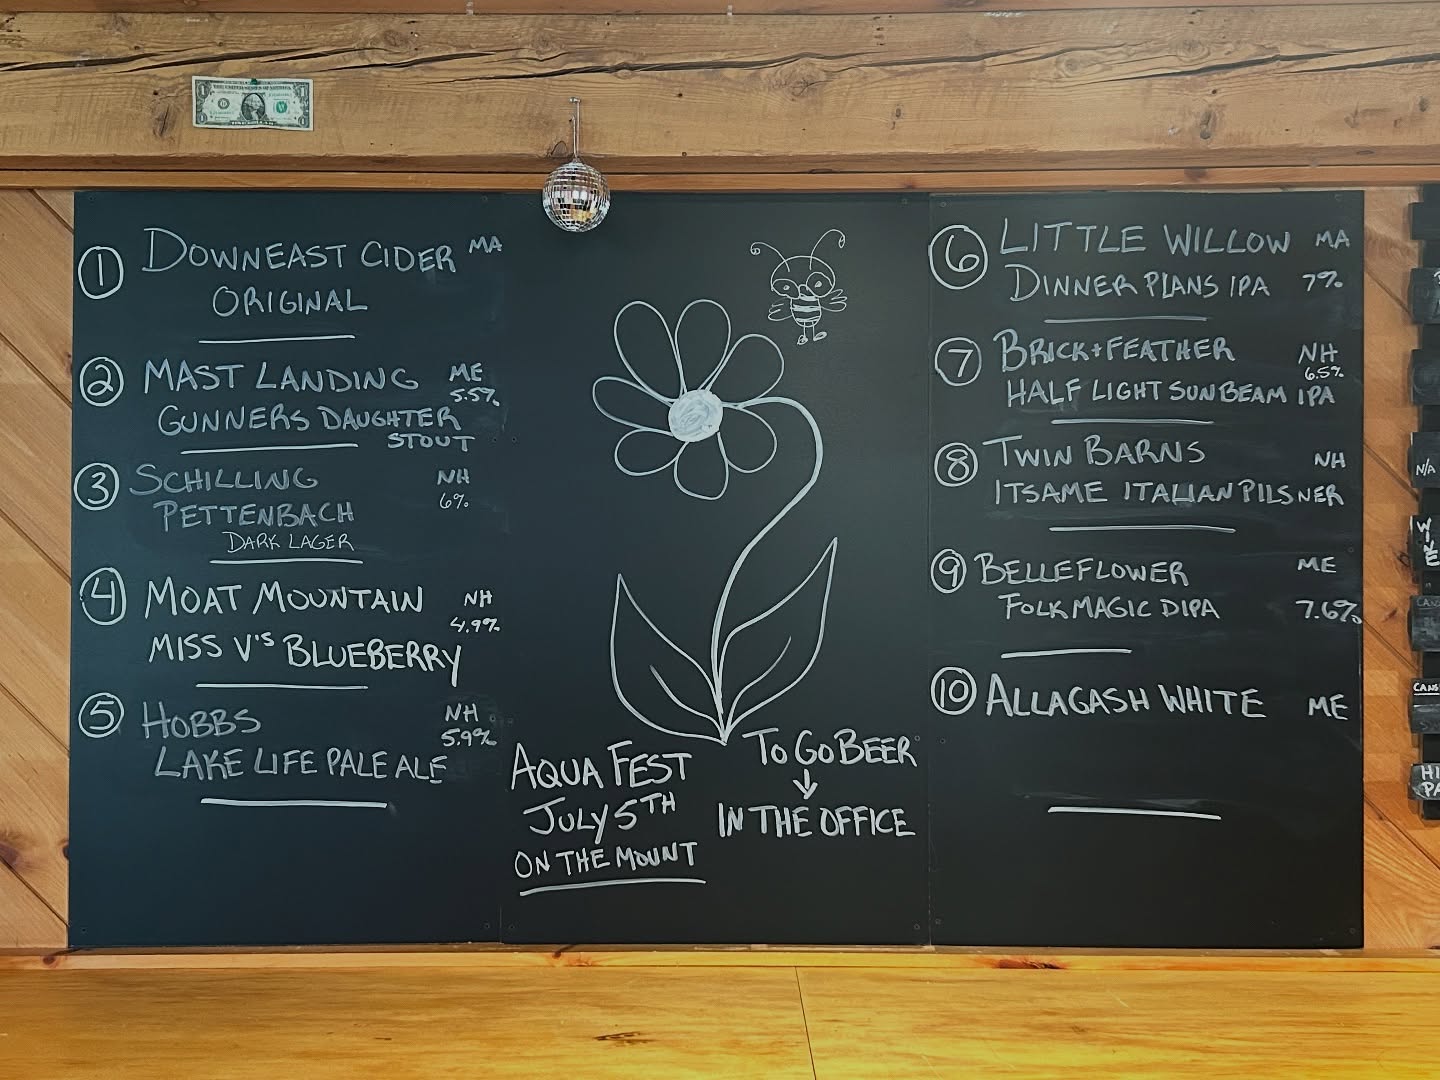 1 DOWNEAST CIDER MA
ORIGINAL
2 MAST LANDING ME
5.5%
GUNNERS DAUGHTER
STOUT
3 SCHILLING NH
6%
PETTENBACH
DARK LAGER
4 MOAT MOUNTAIN NH
4.9%
MISS V'S BLUEBERRY
5 HOBBS NH
5.9%
LAKE LIFE PALE ALE
AQUA FEST
JULY 5TH
ON THE MOUNT
TO GO BEER
↓
IN THE OFFICE
6 LITTLE WILLOW MA
DINNER PLANS IPA 7%
7 BRICK+FEATHER NH
6.5%
HALF LIGHT SUNBEAM IPA
8 TWIN BARNS NH
ITSAME ITALIAN PILSNER
9 BELLEFLOWER ME
FOLK MAGIC DIPA 7.6%
10 ALLAGASH WHITE ME
N/A
WINE
CANS
HI
PA